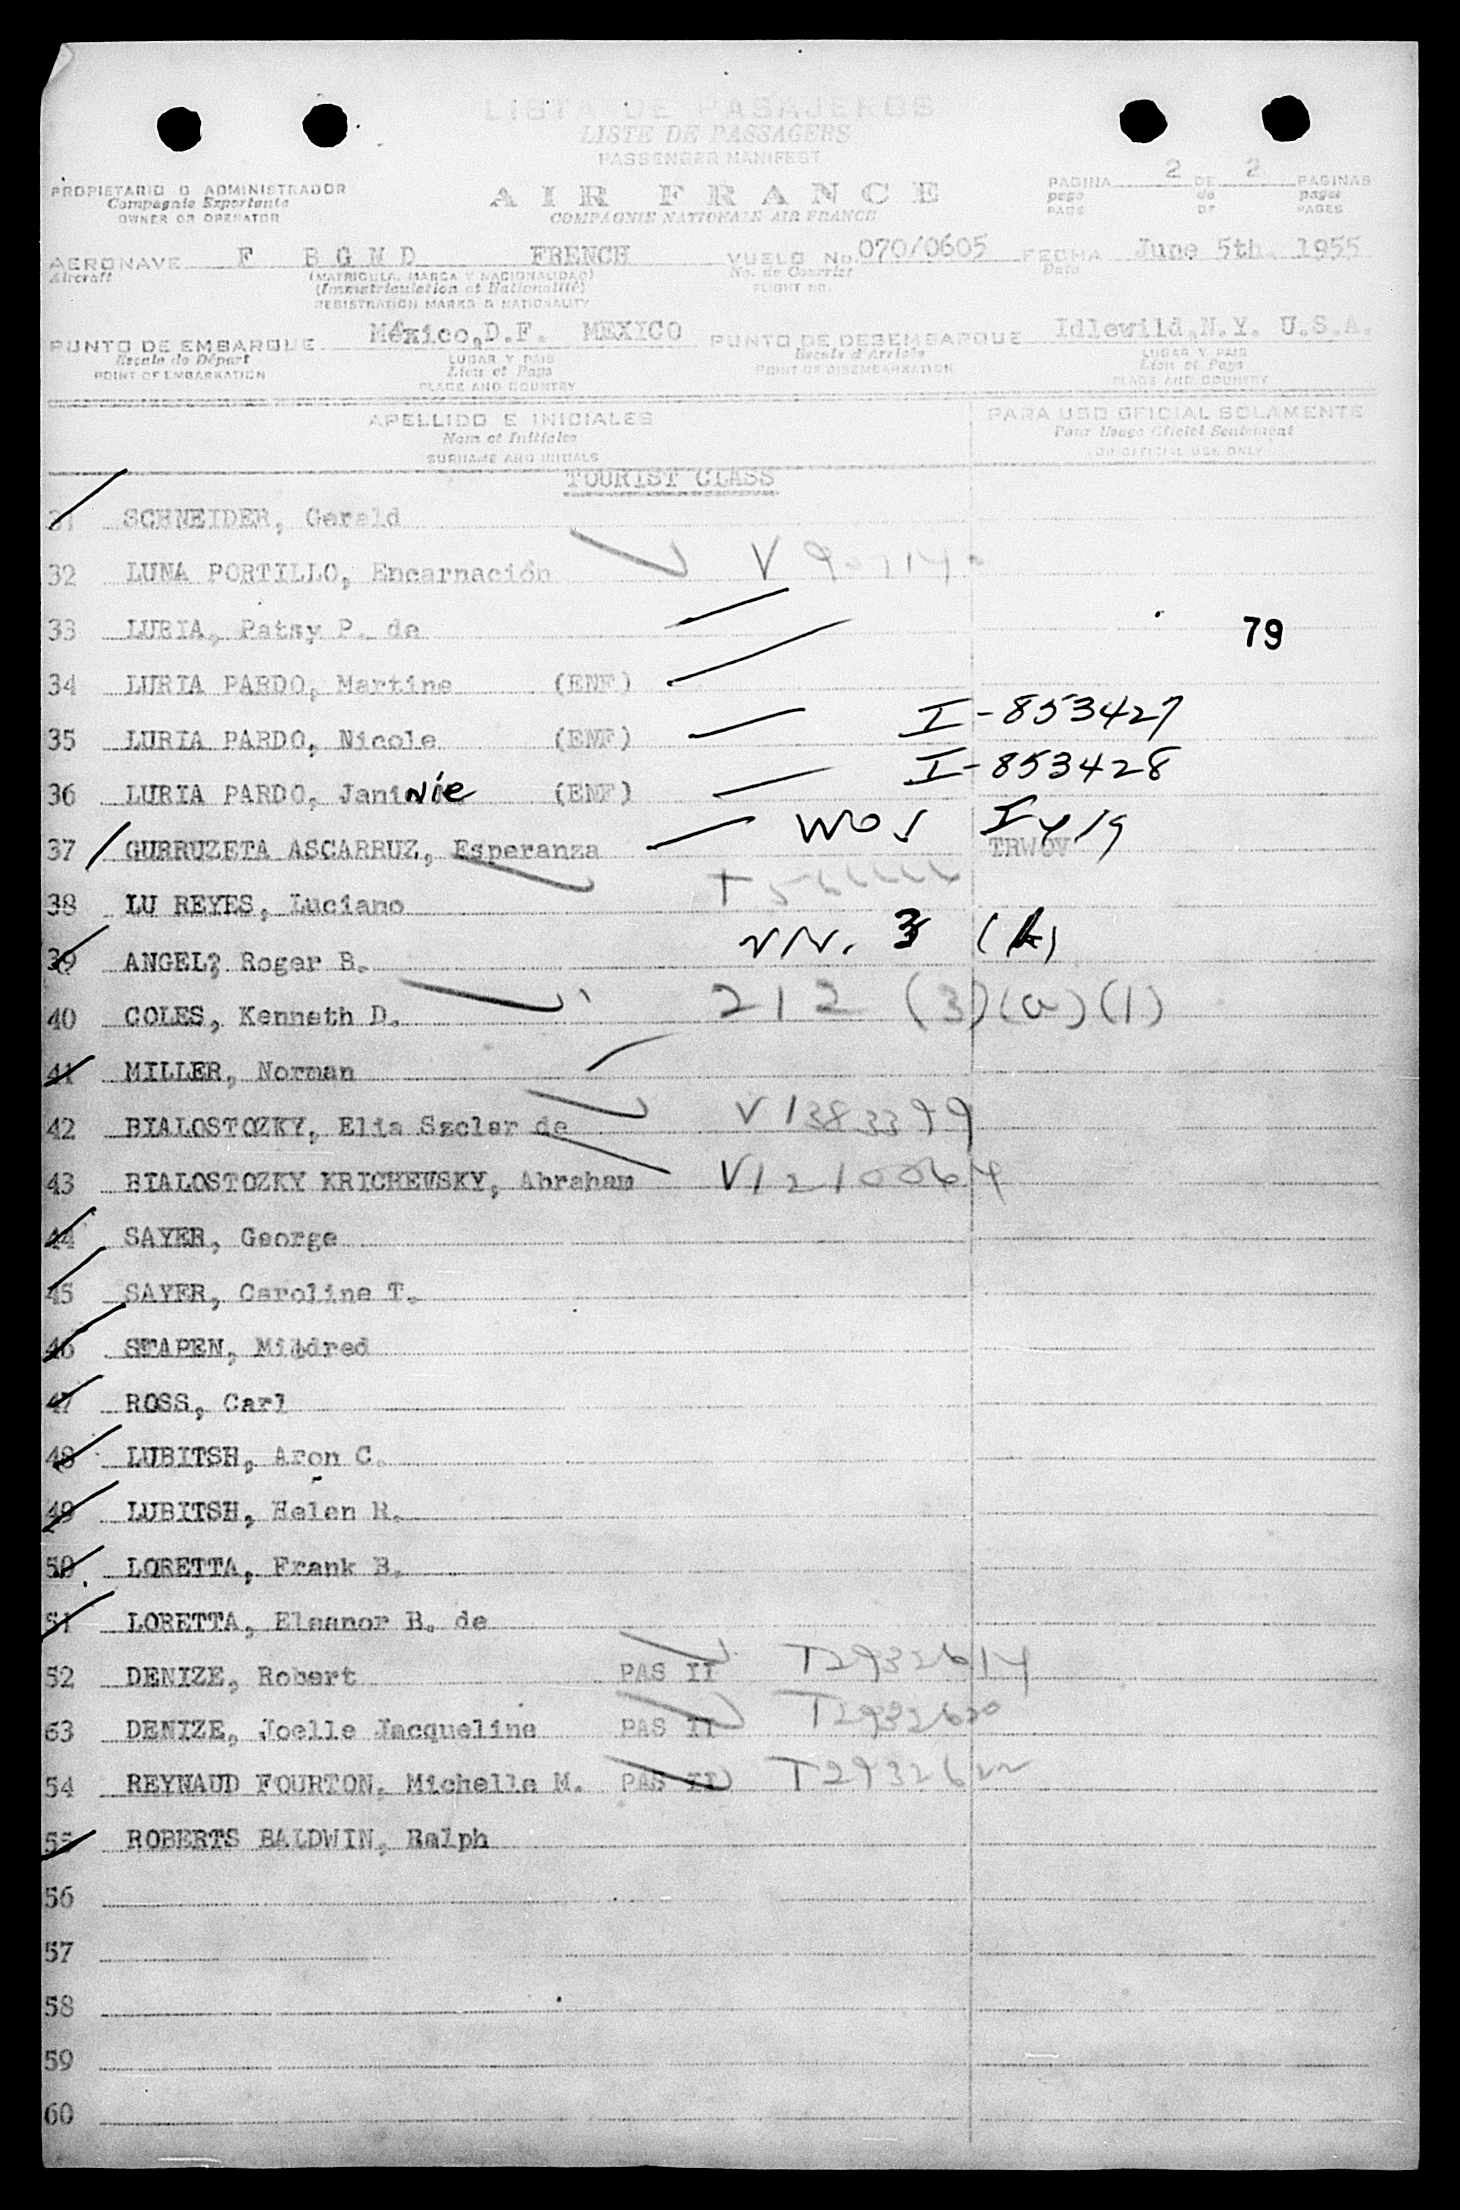 LISTA DE PASAJEROS
LISTE DE PASSAGERS
PASSENGER MANIFEST
PROPIETARIO O ADMINISTRADOR
Compagnie Exportante
OWNER OR OPERATOR
AIR FRANCE
COMPAGNIE NATIONALE AIR FRANCE
PAGINA 2 DE 2 PAGINAS
page de pages
PAGE OF PAGES
AERONAVE F B G N D FRENCH
Aircraft
(MATRICULA, MARCA Y NACIONALIDAD)
(Immatriculation et Nationalité)
REGISTRATION MARKS & NATIONALITY
VUELO No. 070/0605
No. de Courrier
FLIGHT NO.
FECHA June 5th. 1955
Date
PUNTO DE EMBARQUE México,D.F. MEXICO
Escale de Départ
POINT OF EMBARKATION
LUGAR Y PAIS
Lieu et Pays
PLACE AND COUNTRY
PUNTO DE DESEMBARQUE Idlewild,N.Y. U.S.A.
Escale d'Arrivée
POINT OF DISEMBARKATION
LUGAR Y PAIS
Lieu et Pays
PLACE AND COUNTRY
APELLIDO E INICIALES
Nom et Initiales
SURNAME AND INITIALS
PARA USO OFICIAL SOLAMENTE
Pour Usage Officiel Seulement
FOR OFFICIAL USE ONLY
TOURIST CLASS
31 SCHNEIDER, Gerald
32 LUNA PORTILLO, Encarnación
33 LURIA, Patsy P. de
79
34 LURIA PARDO, Martine (ENF)
35 LURIA PARDO, Nicole (ENF) I-853427
36 LURIA PARDO, Janinie (ENF) I-853428
37 GURRUZETA ASCARRUZ, Esperanza TRWOV
38 LU REYES, Luciano
39 ANGEL? Roger B.
40 COLES, Kenneth D. 212 (3)(a)(1)
41 MILLER, Norman
42 BIALOSTOZKY, Elia Szcler de V1383399
43 BIALOSTOZKY KRICHEWSKY, Abraham V1210064
44 SAYER, George
45 SAYER, Caroline T.
46 STAPEN, Mildred
47 ROSS, Carl
48 LUBITSH, Aron C.
49 LUBITSH, Helen R.
50 LORETTA, Frank B.
51 LORETTA, Eleanor B. de
52 DENIZE, Robert PAS II T2932614
53 DENIZE, Joelle Jacqueline PAS II T2932620
54 REYNAUD FOURTON, Michelle M. PAS II T2932622
55 ROBERTS BALDWIN, Ralph
56
57
58
59
60